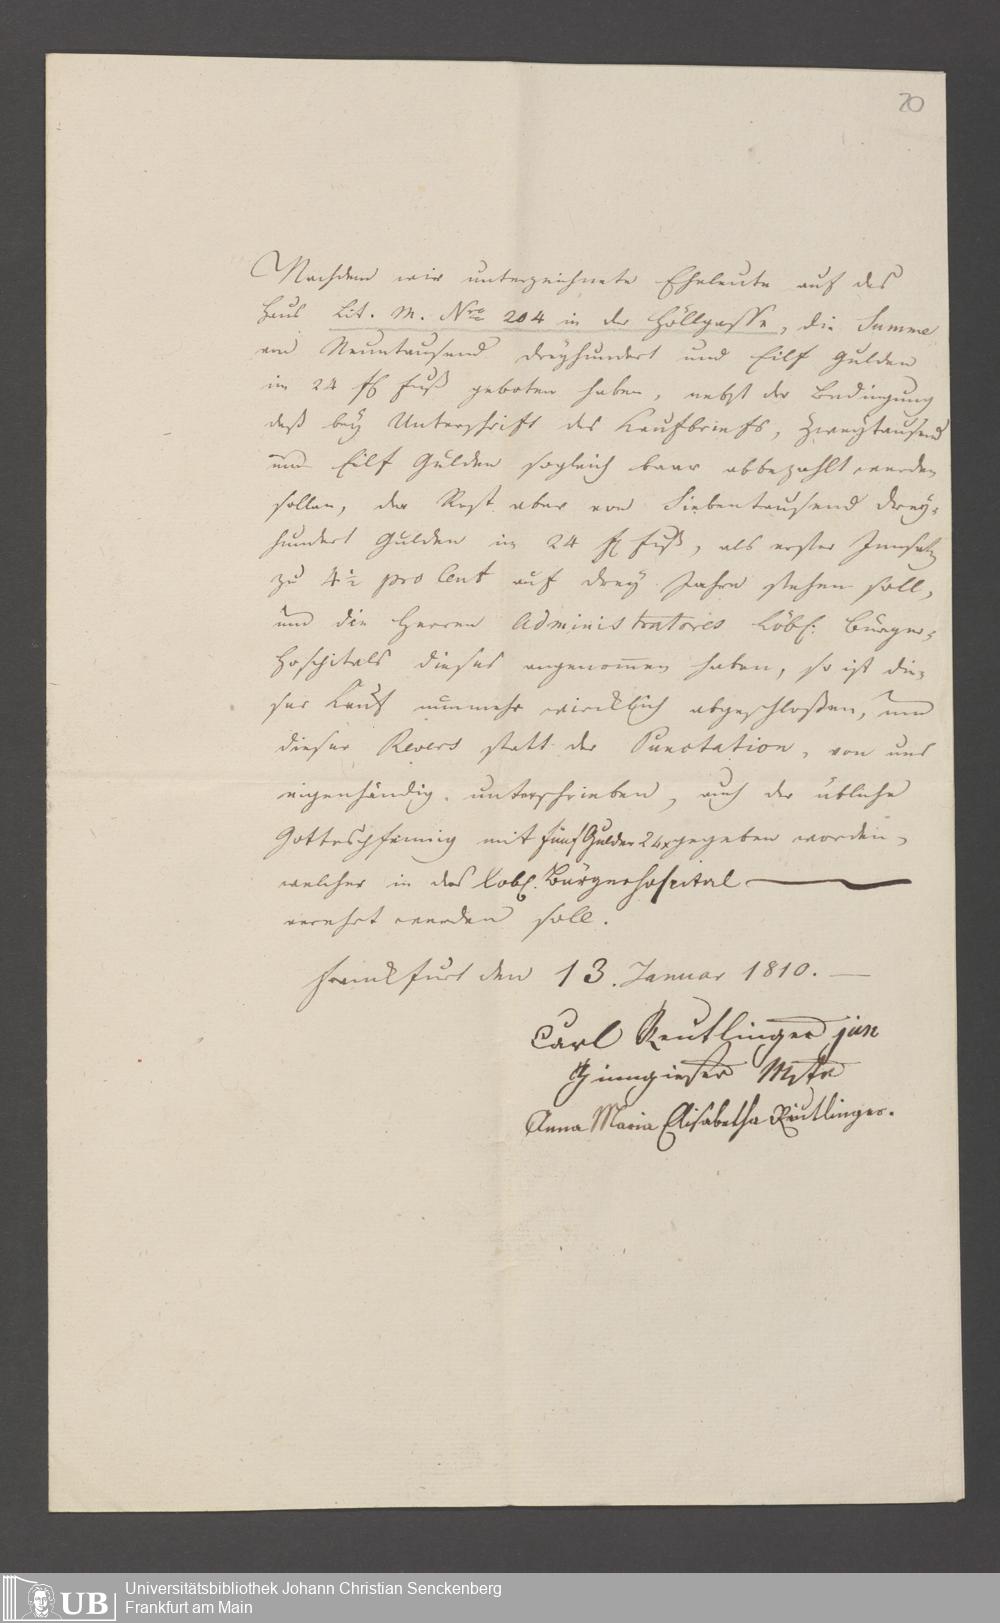 20
Nachdem wir unterzeichnete Eheleute auf das
Haus Lit. M. Nro 204 in der Höllgasse, die Summe
von Neuntausend dreyhundert und Eilf Gulden
im 24 fl Fuß geboten haben, nebst der Bedingung
daß bey Unterschrift des Kaufbriefs, Zweytausend
und Eilf Gulden sogleich baar abbezahlt werden
sollen, der Rest aber von Siebentausend drey-
hundert Gulden im 24 fl Fuß, als erster Innsatz
zu 4½ pro Cent auf drey Jahre stehen soll,
und die Herren Administratores Löbl. Bürger-
hospitals dieses angenommen haben, so ist die-
ser Kauf nunmehr wircklich abgeschloßen, und
dieser Revers statt der Punctation, von uns
eigenhändig unterschrieben, auch der übliche
Gottespfennig mit fünf Gulden 24x gegeben worden,
welcher in das Lobl. Bürgerhospital
verehrt werden soll.
Franckfurt den 13. Januar 1810.
Carl Reutlinger jun
Zinngieser Mstr
Anna Maria Elisabetha Reutlinger.
UB
Universitätsbibliothek Johann Christian Senckenberg
Frankfurt am Main